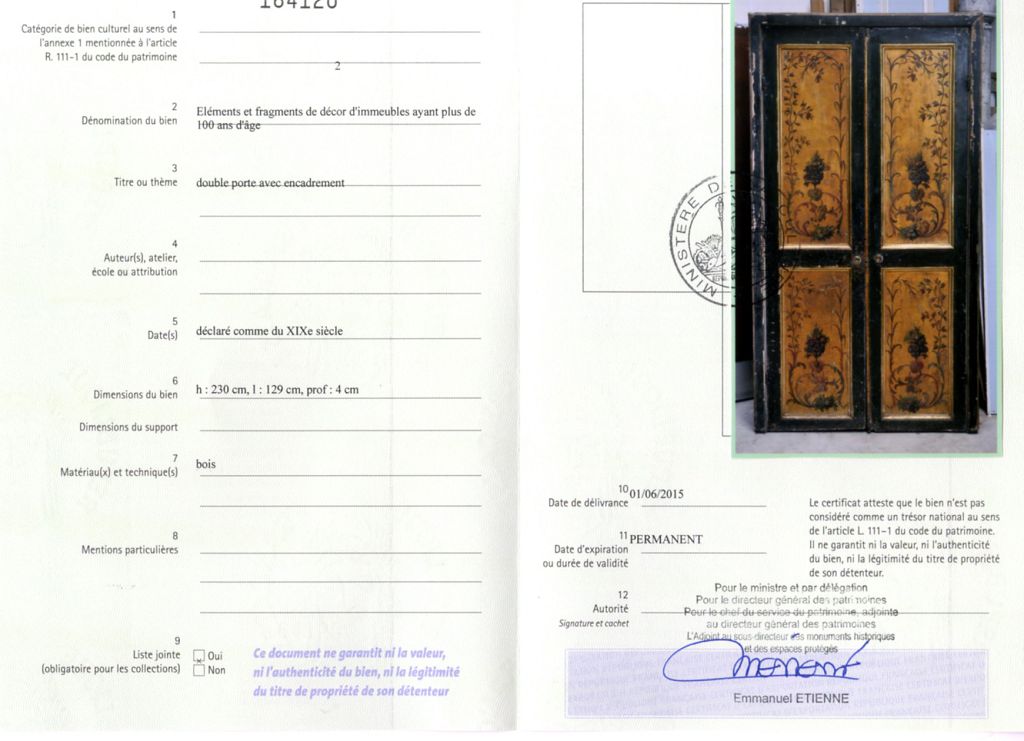 164120
1
Catégorie de bien culturel au sens de
l'annexe 1 mentionnée à l'article
R. 111-1 du code du patrimoine
2
2
Dénomination du bien
Eléments et fragments de décor d'immeubles ayant plus de
100 ans d'âge
3
Titre ou thème
double porte avec encadrement
4
Auteur(s), atelier,
école ou attribution
5
Date(s)
déclaré comme du XIXe siècle
6
Dimensions du bien
h : 230 cm, l : 129 cm, prof : 4 cm
Dimensions du support
7
Matériau(x) et technique(s)
bois
8
Mentions particulières
9
Liste jointe
(obligatoire pour les collections)
Oui
Non
Ce document ne garantit ni la valeur,
ni l'authenticité du bien, ni la légitimité
du titre de propriété de son détenteur
MINISTERE D
10
Date de délivrance
01/06/2015
11
Date d'expiration
ou durée de validité
PERMANENT
Le certificat atteste que le bien n'est pas
considéré comme un trésor national au sens
de l'article L. 111-1 du code du patrimoine.
Il ne garantit ni la valeur, ni l'authenticité
du bien, ni la légitimité du titre de propriété
de son détenteur.
12
Autorité
Signature et cachet
Pour le ministre et par délégation
Pour le directeur général des patrimoines
Pour le chef du service du patrimoine, adjointe
au directeur général des patrimoines
L'Adjoint au sous-directeur des monuments historiques
et des espaces protégés
Emmanuel ETIENNE